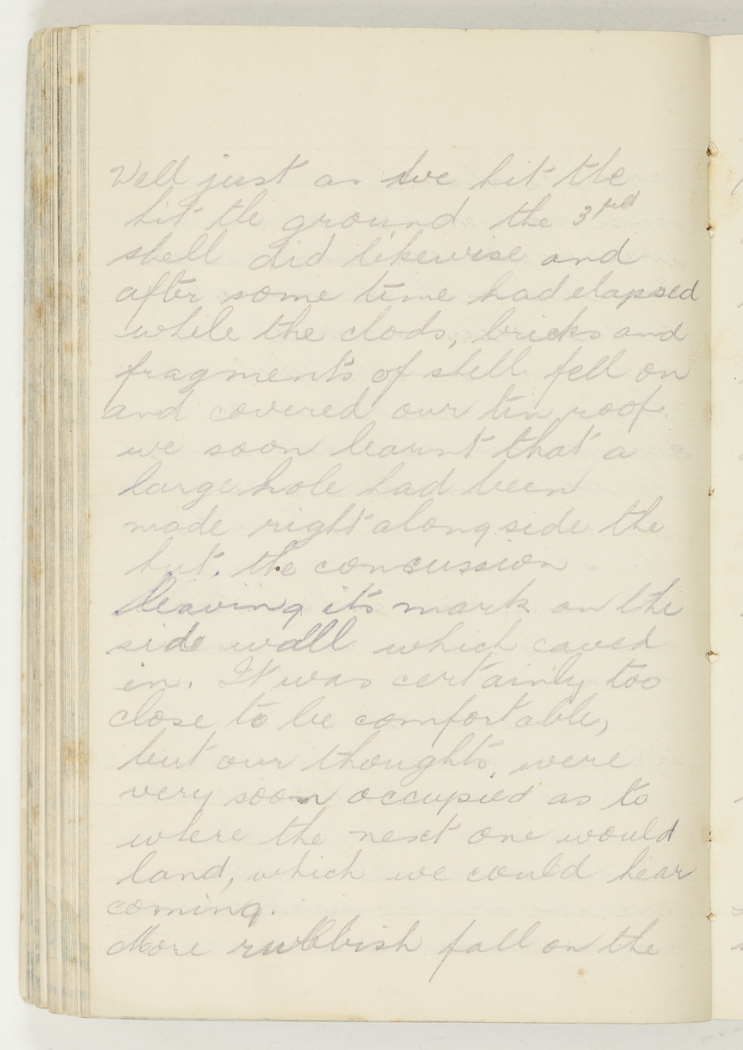 Well just as we hit the
hit the ground the 3rd
shell did likewise and
after some time had elapsed
while the clods, bricks and
fragments of shell fell on
and covered our tin roof.
we soon learnt that a
large hole had been
made right alongside the
hut. the concussion
leaving its mark on the
side wall which caved
in. It was certainly too
close to be comfortable,
but our thoughts were
very soon occupied as to
where the next one would
land, which we could hear
coming.
More rubbish fall on the